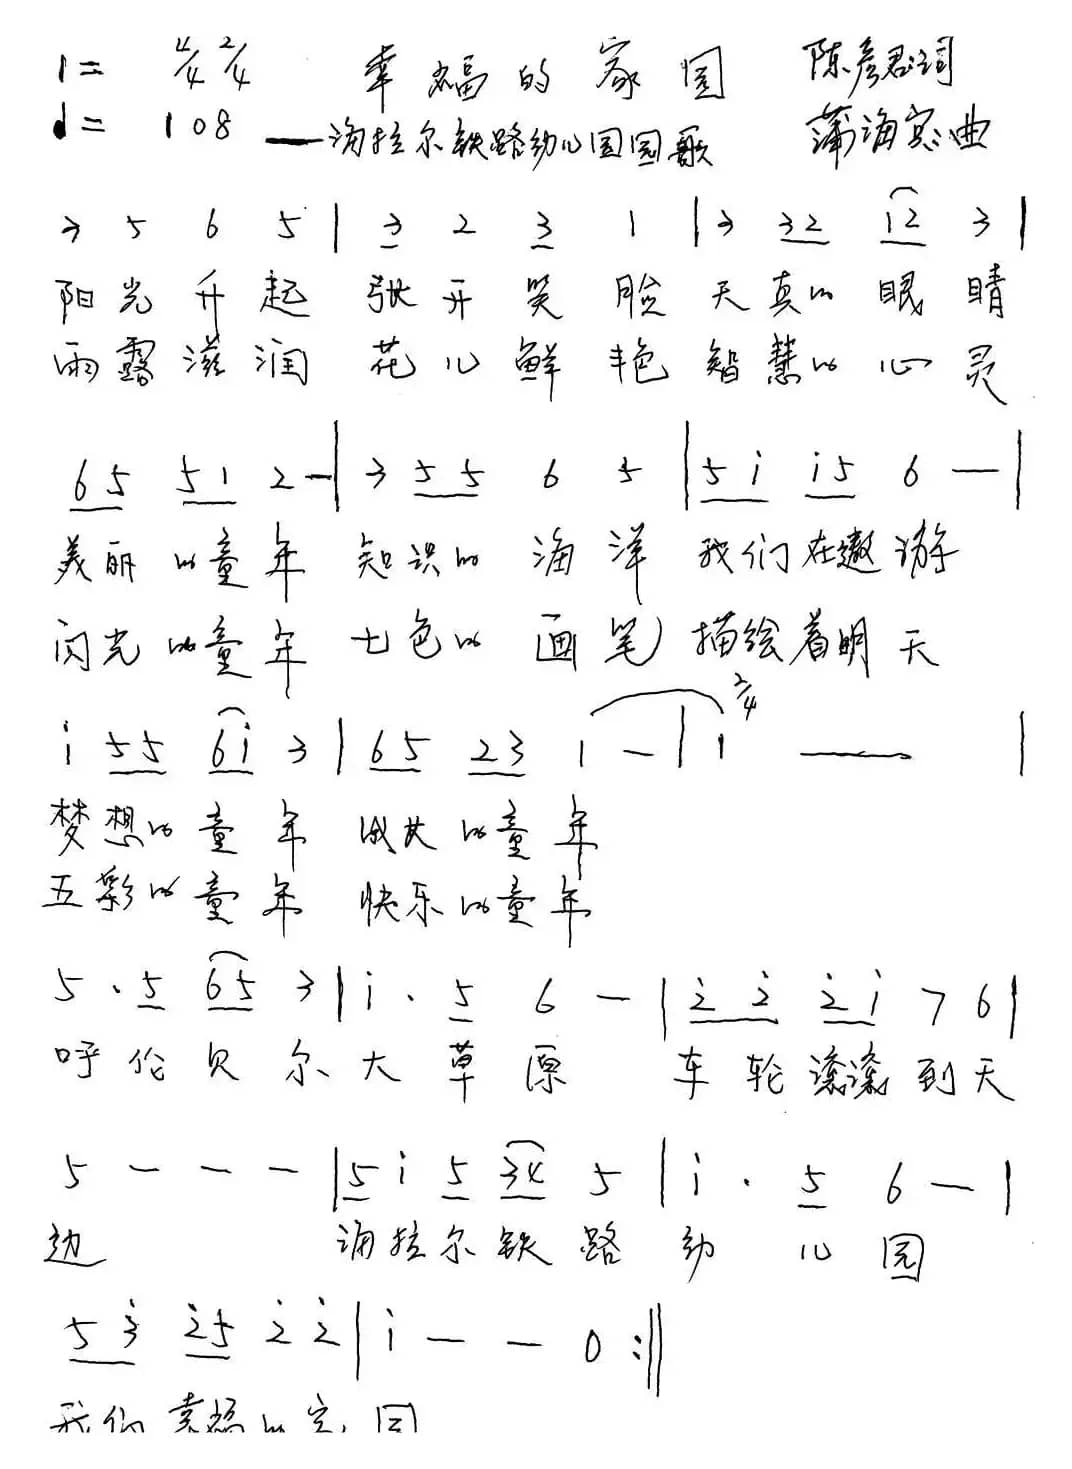 1= 4/4 2/4 幸福的家园 陈彦君词
♩= 108 ——海拉尔铁路幼儿园园歌 蒲海宽曲
3 5 6 5 | 3 2 3 1 | 3 32 12 3 |
阳光升起 张开笑脸 天真的眼睛
雨露滋润 花儿鲜艳 智慧的心灵
65 51 2 — | 3 55 6 5 | 5i i5 6 — |
美丽的童年 知识的海洋 我们在遨游
闪光的童年 七色的画笔 描绘着明天
i 55 6i 3 | 65 23 1 — | 2/4 1 — |
梦想的童年 成长的童年
五彩的童年 快乐的童年
5 · 5 65 3 | i · 5 6 — | 2̇ 2̇ 2̇ i 7 6 |
呼伦贝尔大草原 车轮滚滚到天
5 — — — | 5 i 5 34 5 | i · 5 6 — |
边 海拉尔铁路幼儿园
5 3̇ 2̇5 2̇ 2̇ | i — — 0 :‖
我们幸福的家园